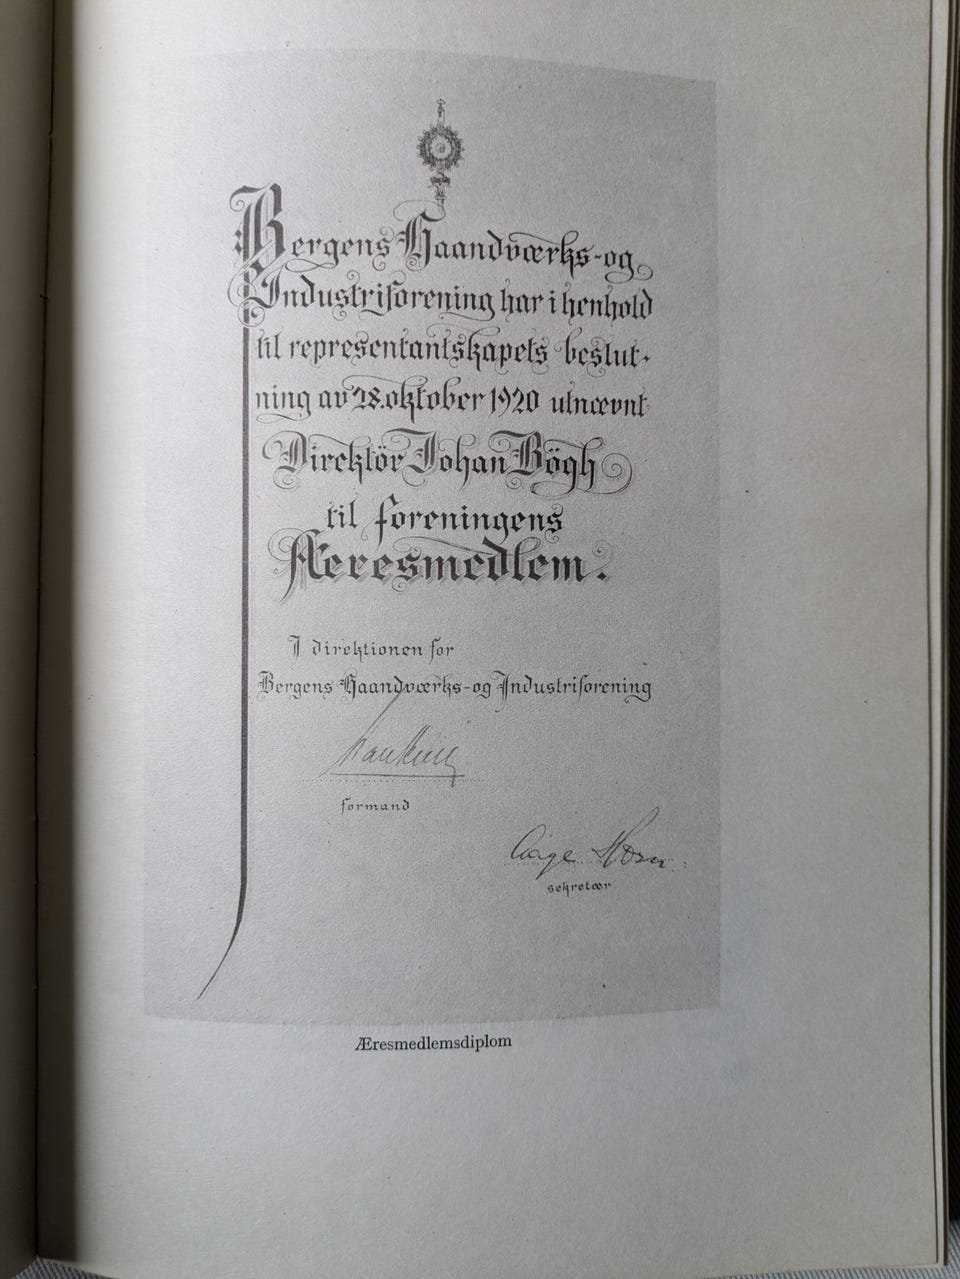 Bergens Haandværks-og
Industriforening har i henhold
til representantskapets beslut-
ning av 28. oktober 1920 utnævnt
Direktör Johan Bögh
til foreningens
Æresmedlem.
I direktionen for
Bergens Haandværks-og Industriforening
formand
Aage Horn
sekretær
Æresmedlemsdiplom